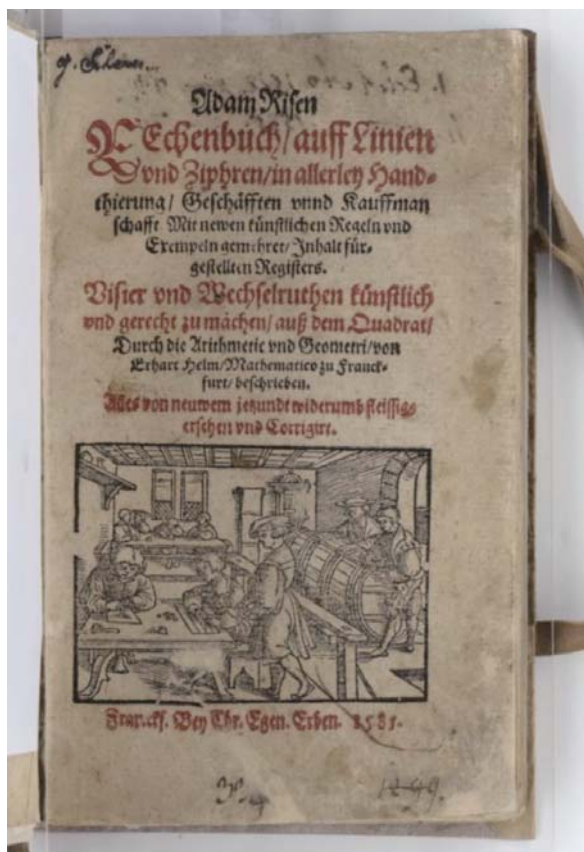 Adam Risen
REchenbuch / auff Linien
vnd Ziphren / in allerley Hand-
thierung / Geschäfften vnnd Kauffman
schafft Mit newen künstlichen Regeln vnd
Exempeln gemehret / Inhalt für-
gestellten Registers.
Visier vnd Wechselruthen künstlich
vnd gerecht zu machen / auß dem Quadrat /
Durch die Arithmetic vnd Geometri / von
Erhart Helm / Mathematico zu Franck-
furt / beschrieben.
Alles von neuwem jetzundt widerumb fleissigs
ersehen vnd Corrigirt.
Franckf. Bey Chr. Egen. Erben. 1581.
1299.